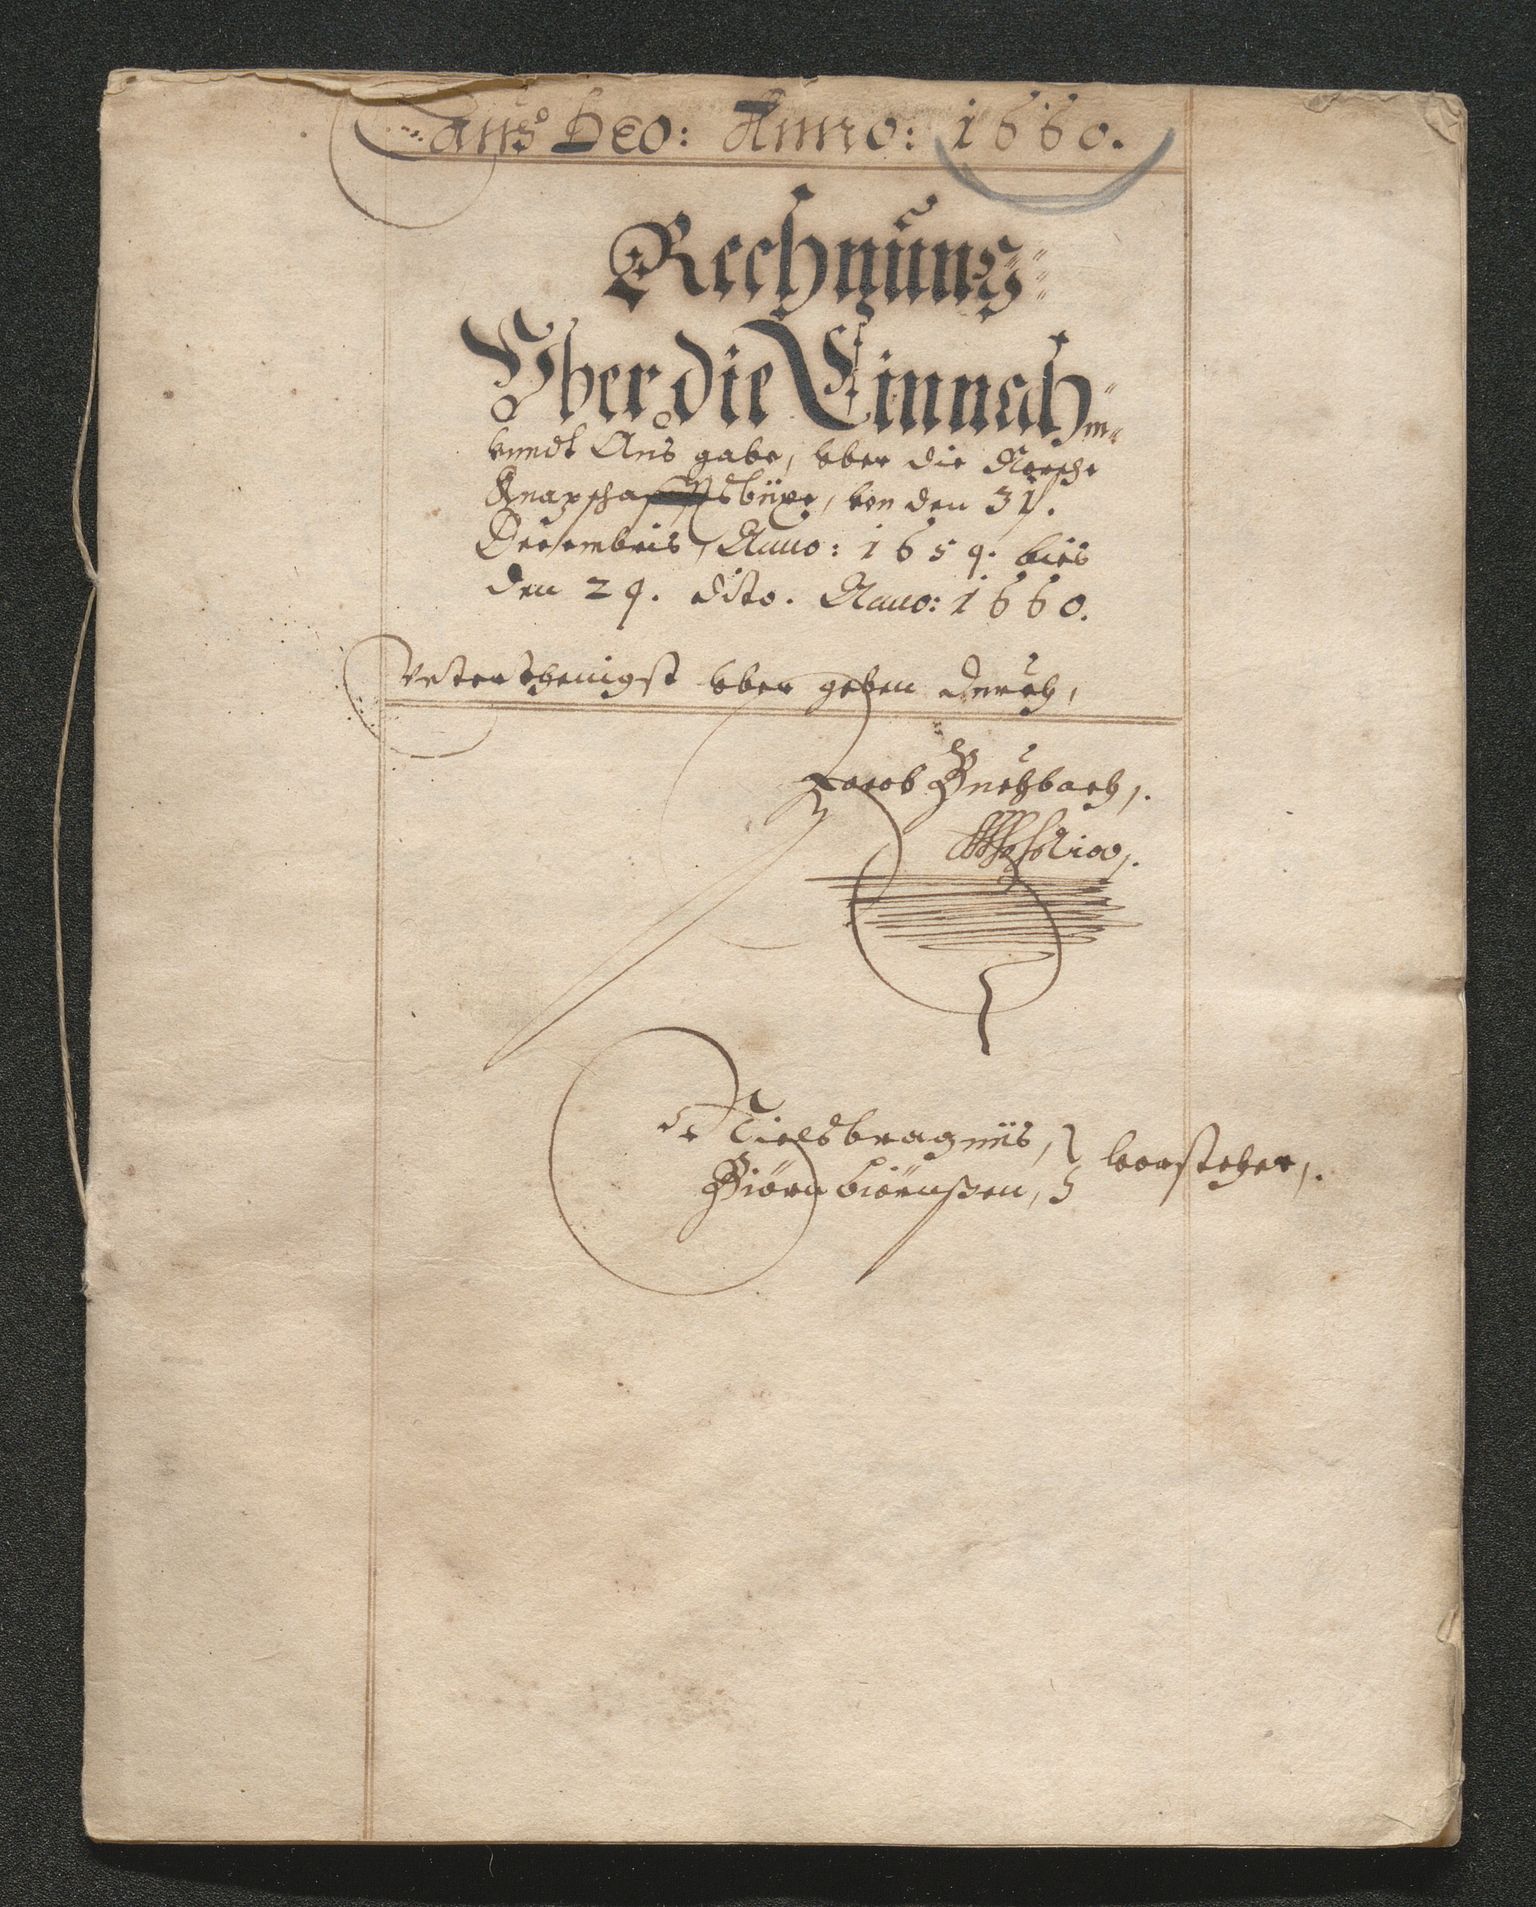 Laus Deo: Anno: 1660.
Rechnung
Vber die Einnahm
vnndt Aus gabe, vber die Norsche
Knapschafftsbüxe, von den 31.
Decembris, Anno: 1659. bies
den 29. dito. Anno: 1660.
Vnterthenigst vber geben durch,
Jacob Buchbach,.
Nielsbragnüs,
Biörn biörnßen, vorsteher,.